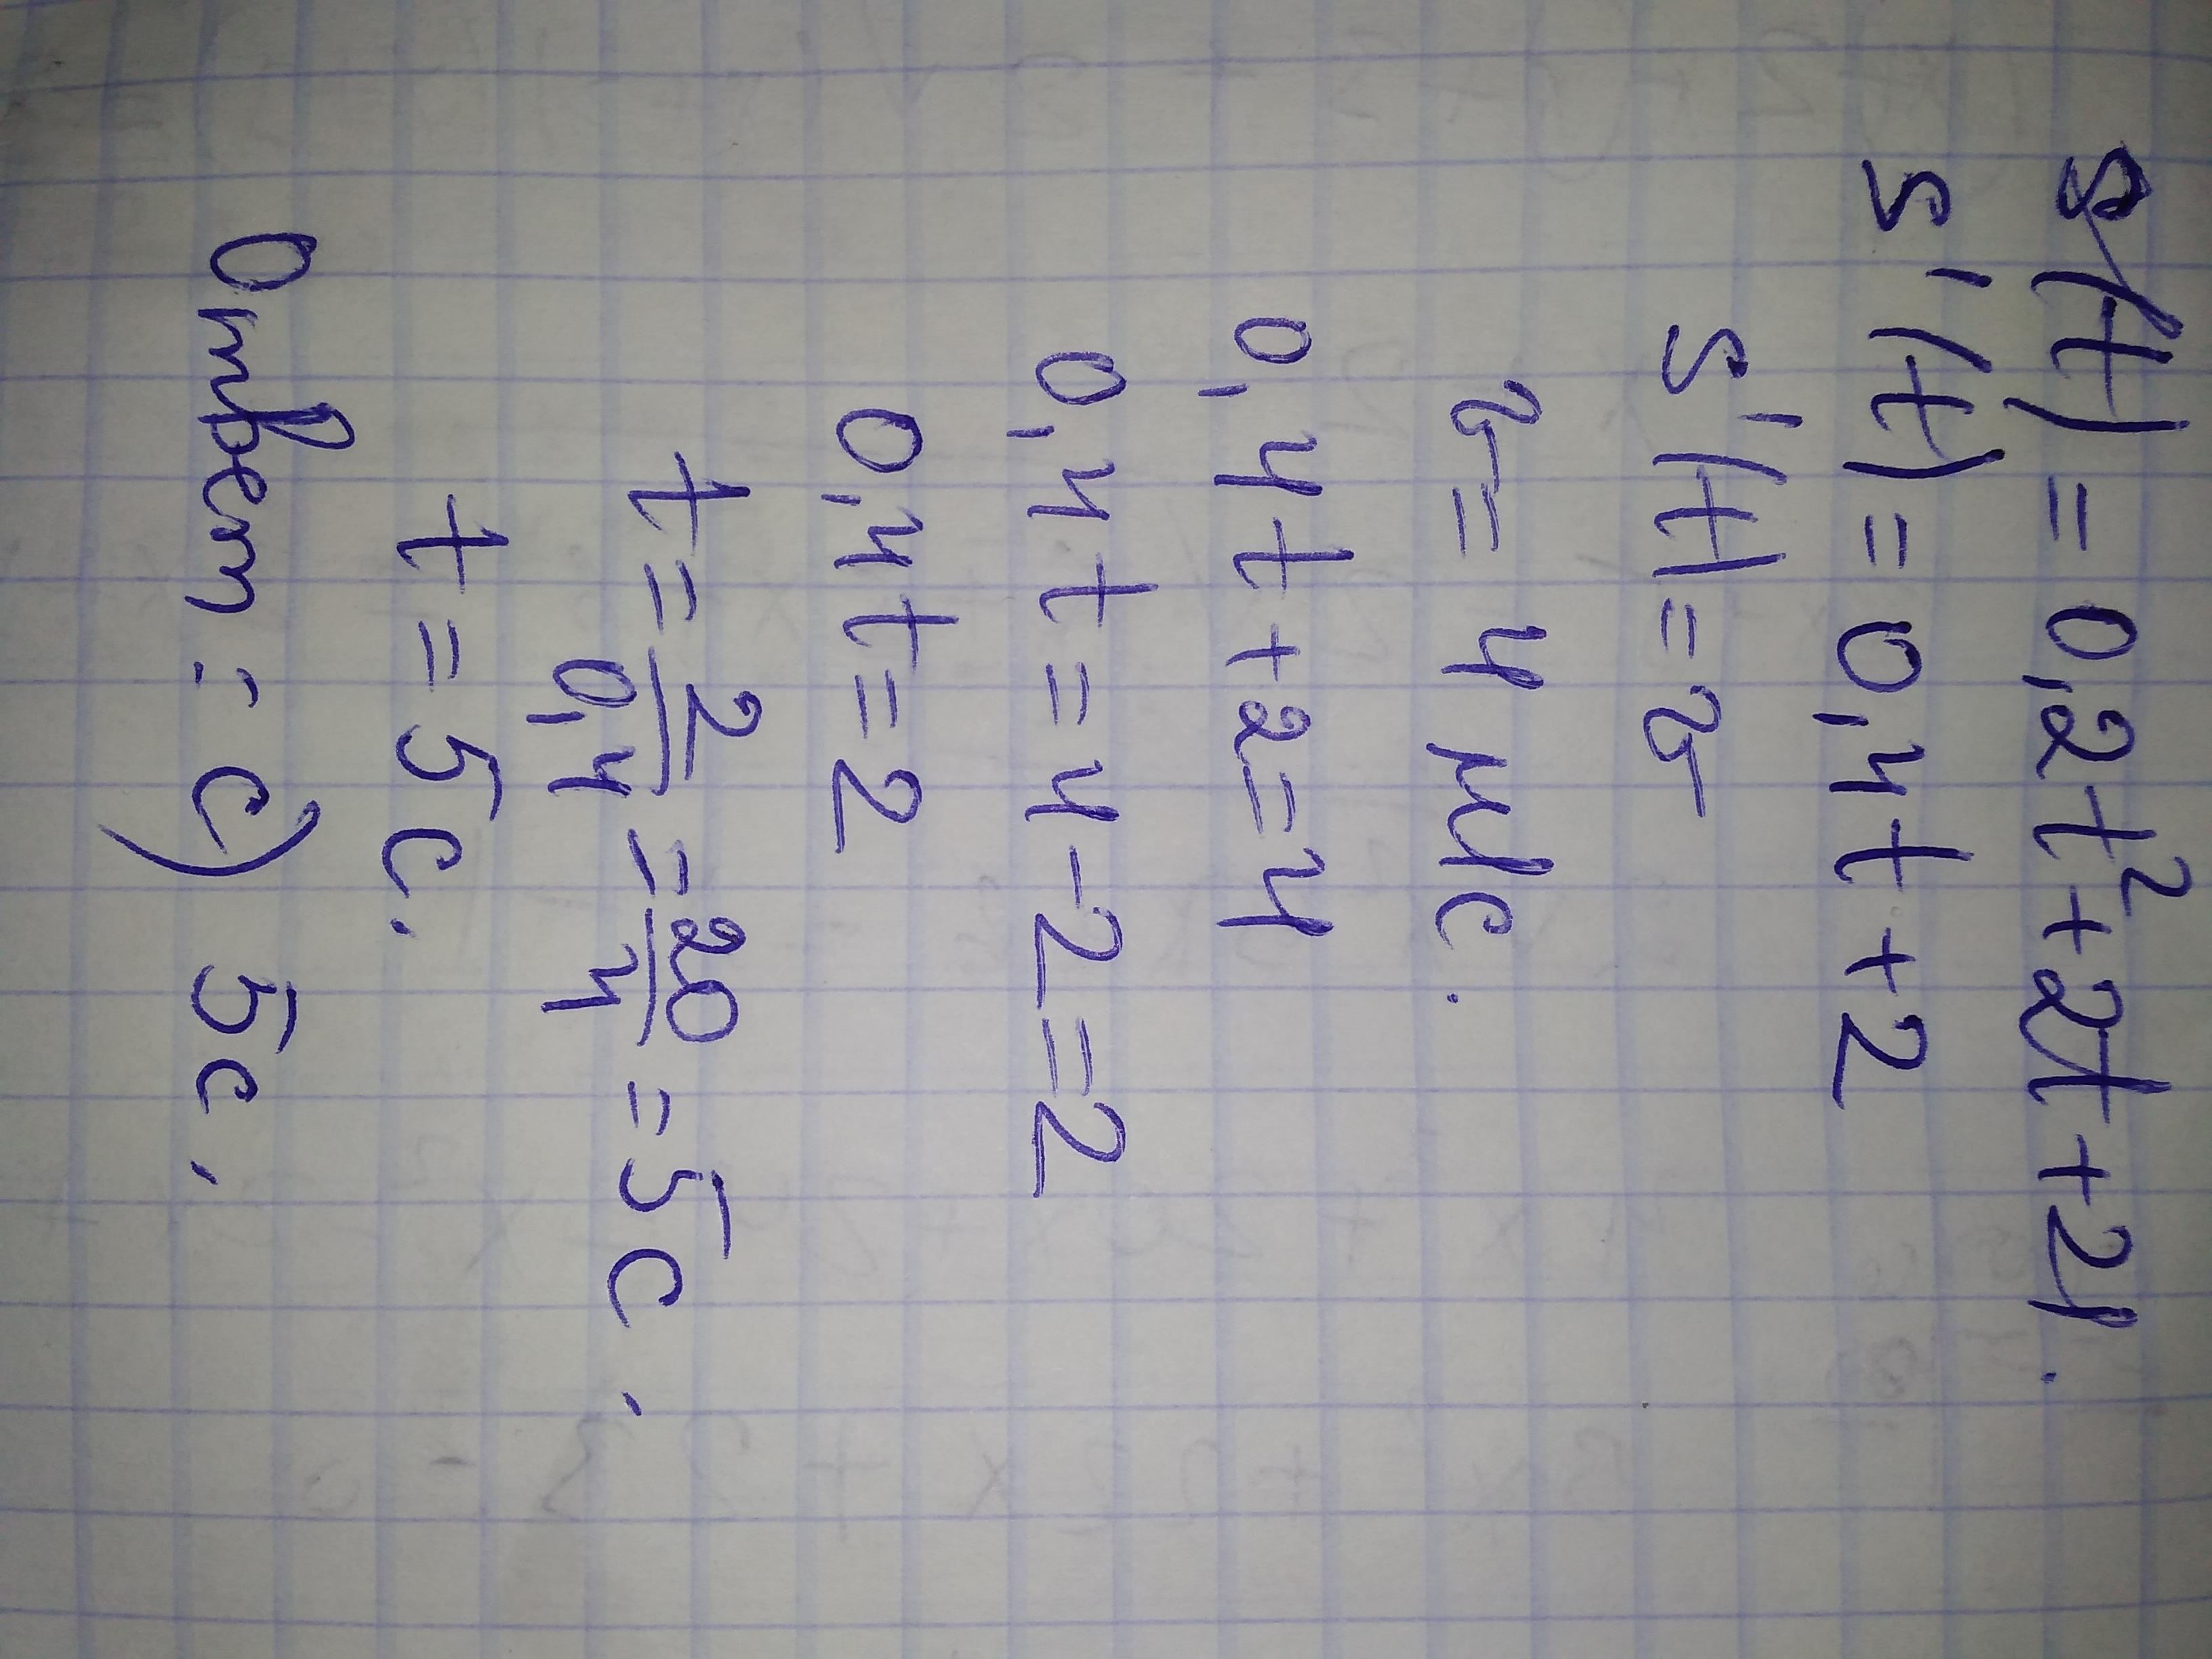 S(t) = 0,2t²+2t+21.
S'(t) = 0,4t+2
S'(t) = v
v = 4 м/с.
0,4t+2=4
0,4t=4-2=2
0,4t=2
t = 2/0,4 = 20/4 = 5 с.
t = 5 с.
Ответ: с) 5с.